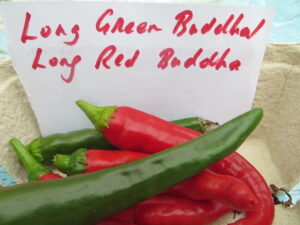 Long Green Buddha
Long Red Buddha